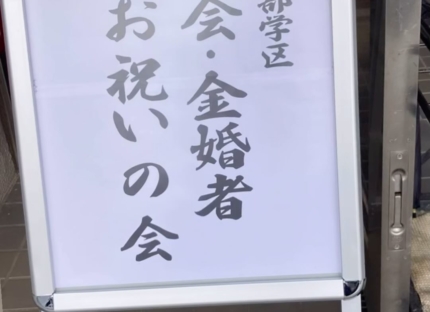 部学区
会・金婚者
お祝いの会